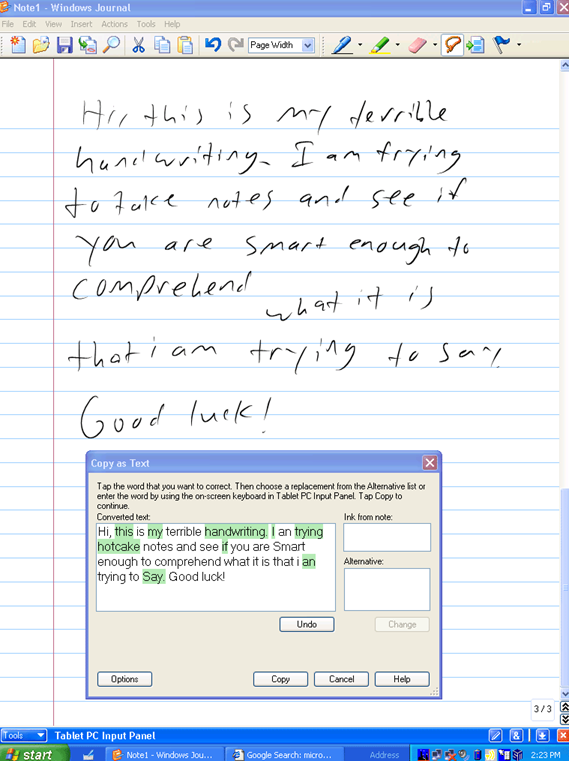 Note1 - Windows Journal
File Edit View Insert Actions Tools Help
Page Width
Hi, this is my terrible
handwriting. I am trying
to take notes and see if
you are smart enough to
comprehend what it is
that i am trying to say.
Good luck!
Copy as Text
Tap the word that you want to correct. Then choose a replacement from the Alternative list or
enter the word by using the on-screen keyboard in Tablet PC Input Panel. Tap Copy to
continue.
Converted text:
Ink from note:
Hi, this is my terrible handwriting. I an trying
hotcake notes and see if you are Smart
enough to comprehend what it is that i an
trying to Say. Good luck!
Alternative:
Undo
Change
Options
Copy
Cancel
Help
3 / 3
Tools
Tablet PC Input Panel
start
Note1 - Windows Jou...
Google Search: micro...
Address
2:23 PM